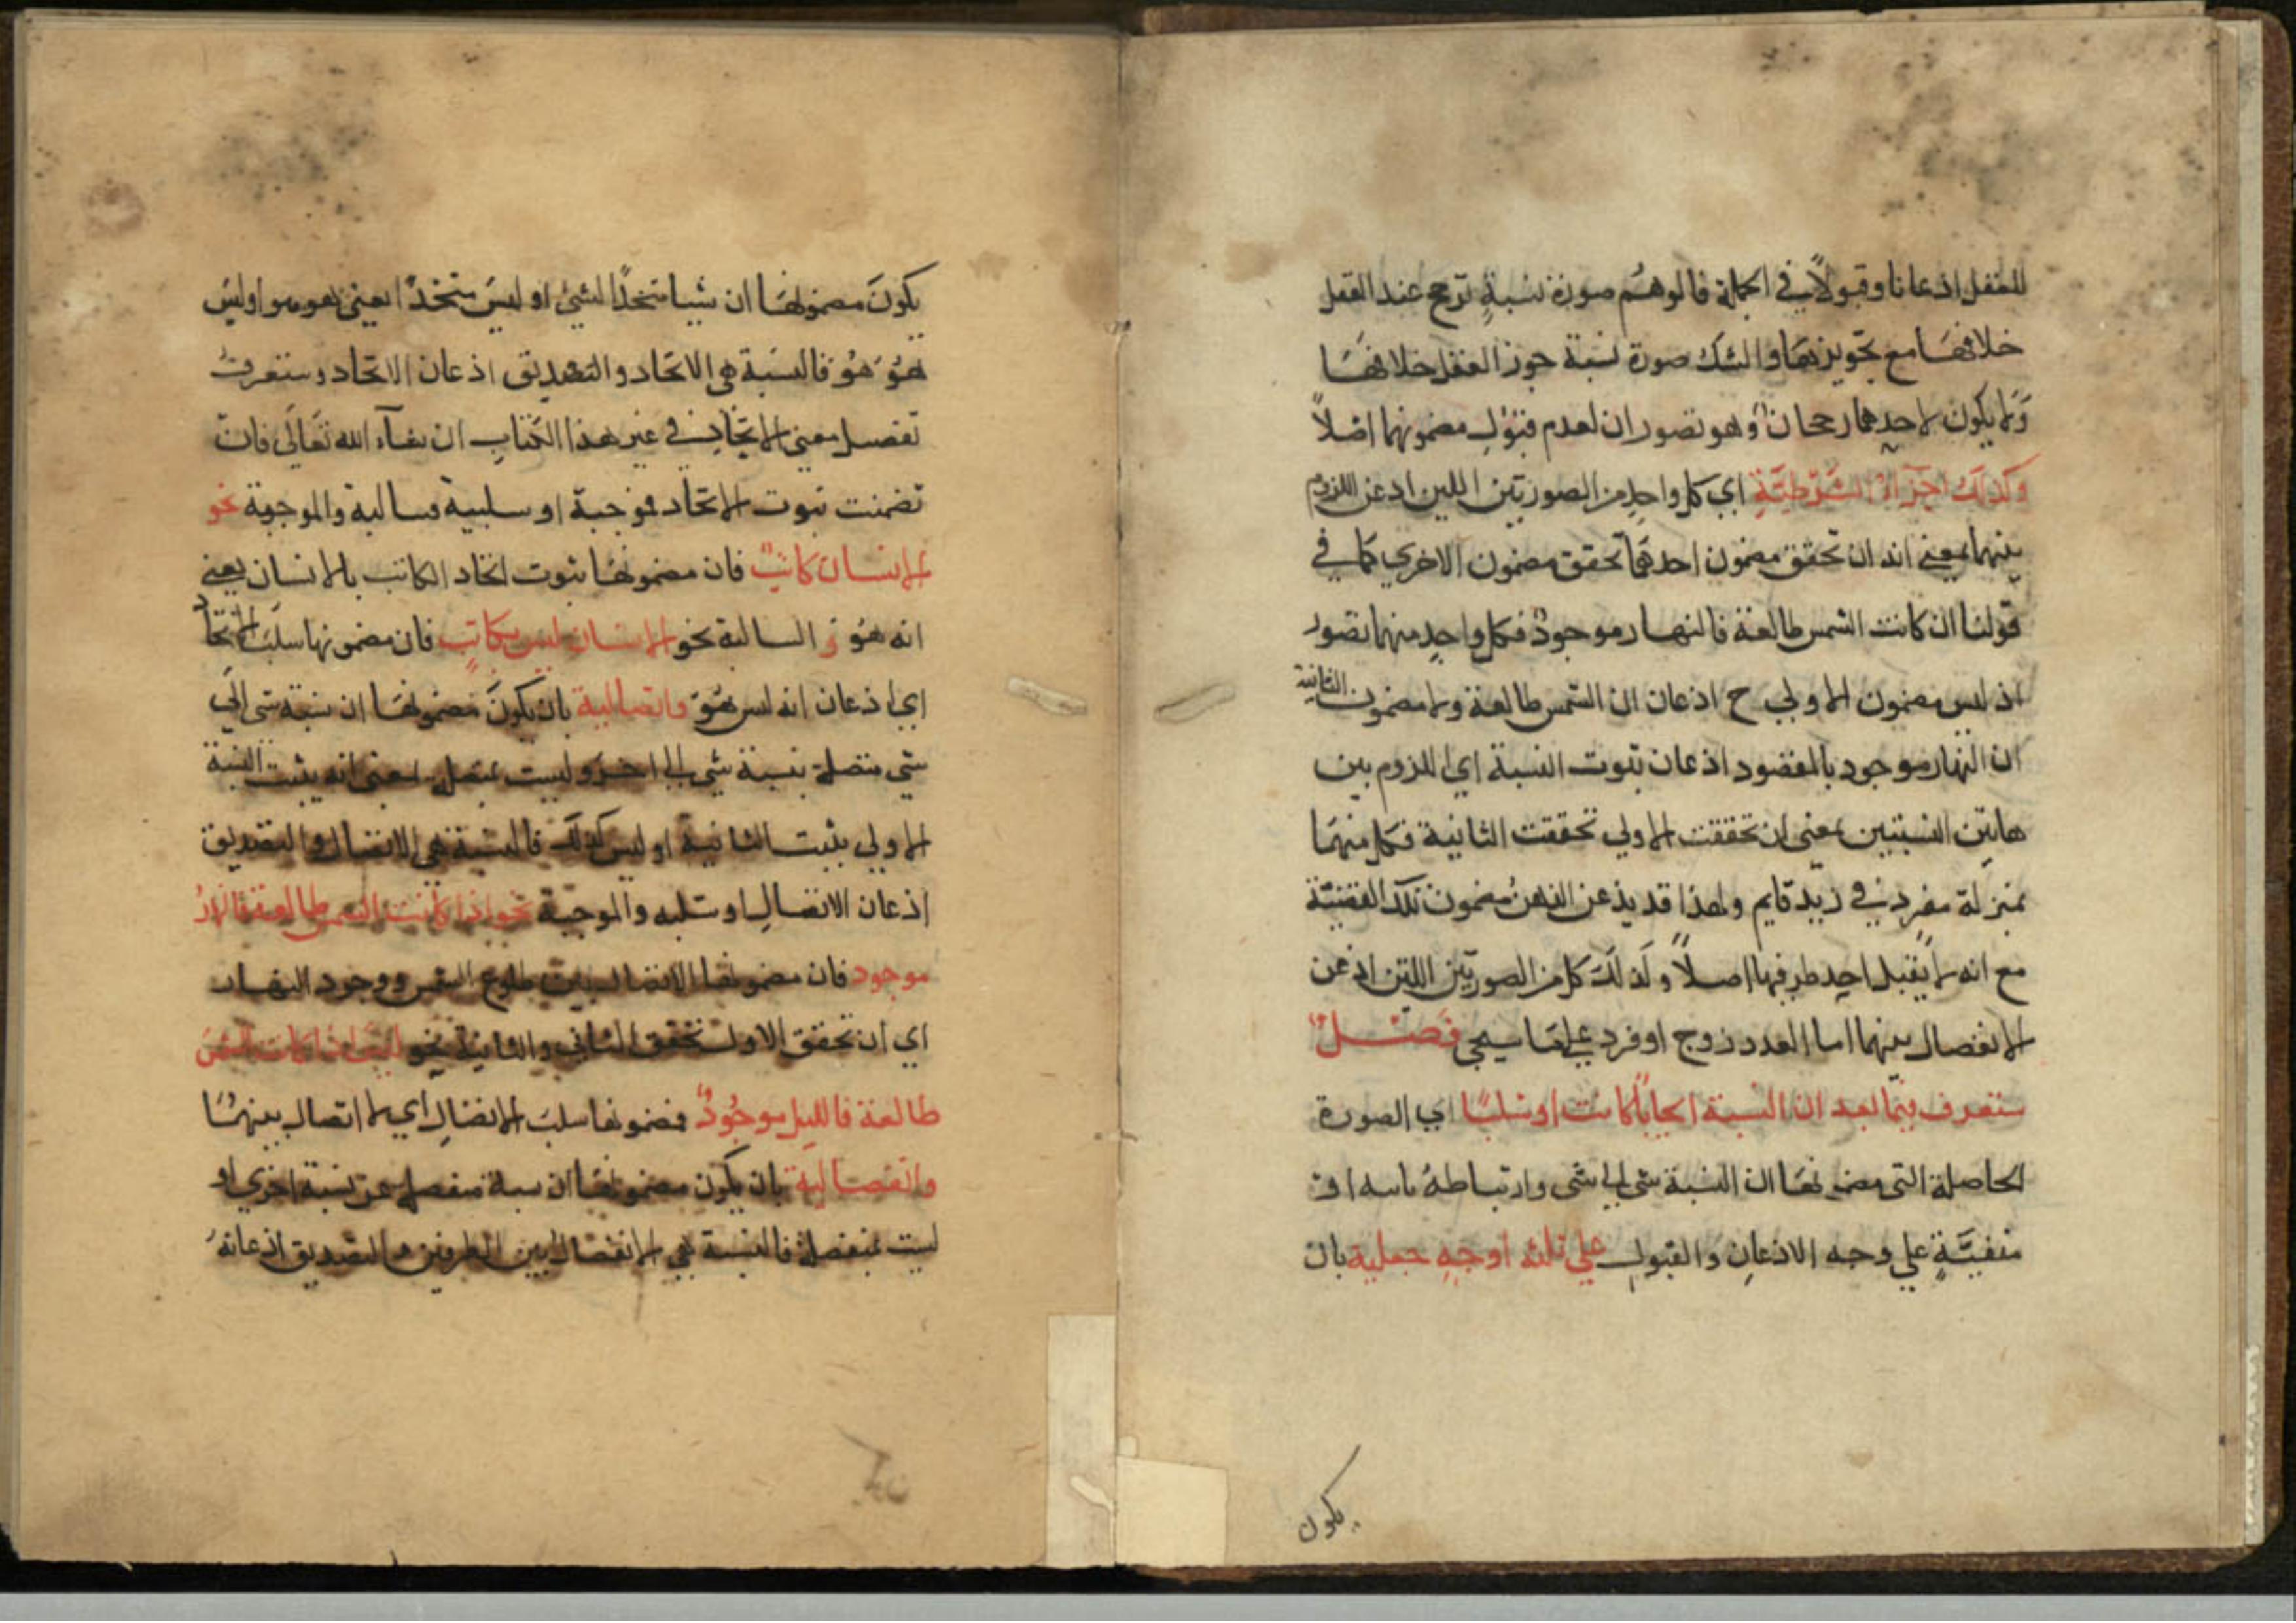 للعقل اذعانا وقبولاً في الجملة فالوهم صورة نسبةٍ ترجح عند العقل
خلافها مع تجويزها والشك صورة نسبة جوز العقل خلافها
ولا يكون لاحدهما رجحان وهو تصور ان لعدم قبول مضمونهما اصلاً
وكذلك اجزاء الشرطيَّةِ اي كل واحدٍ من الصورتين اللتين اذعن اللزوم
بينهما بمعني انه ان تحقق مضمون احدهما تحقق مضمون الاخري كما في
قولنا ان كانت الشمس طالعة فالنهار موجودٌ فكل واحدٍ منهما تصور
اذ ليس مضمون الاولي ح اذعان ان الشمس طالعة ولا مضمون الثانية
ان النهار موجود بالمقصود اذعان ثبوت النسبة اي اللزوم بين
هاتين النسبتين بمعنى ان تحققت الاولي تحققت الثانية فكل منهما
بمنزلة مفرد في زيد قايم ولهذا قد يذعن الذهنُ مضمون تلك القضيّة
مع انه لا يقبل احد طرفيها اصلاً ولذلك كل من الصورتين اللتين اذعن
الانفصال بينهما اما العدد زوج او فرد علي ما سيجي فصـــل
ستعرف فيما بعد ان النسبة ايجاباً كانت او سلبًا اي الصورة
الحاصلة التى مضمونها ان النسبة شى الى شى وارتباطهُ باسه او
منفيَّةٍ علي وجه الاذعانِ والقبولِ علي ثلثه اوجهٍ حملية بان
يكون
يكونَ مضمونها ان شيا متحدًا لشئ او ليسَ متحدًا يعني هو هو او ليسَ
هوَ هوَ فالنسبة هي الاتحاد والتصديق اذعان الاتحاد وستعرف
تفصيل معني الاتحاد في غير هذا الكتاب ان شآء الله تعالى فان
تضمنت ثبوت الاتحاد فوجبة او سلبية فسالبة والموجبة نحو
الانسان كاتبٌ فان مضمونها ثبوت اتحاد الكاتب بالانسان يعني
انه هوَ و السالبة نحو الانسان ليس بكاتبٍ فان مضمونها سلبَ الاتحاد
اي اذعان انه ليس هوَ واتصالية بان يكونَ مضمونها ان نسبة شى الى
شى متصلة بنسبة شى الى اخر وليست بمتصلة بمعنى انه يثبت النسبة
الاولى بثبت الثانية او ليس كذلك فالنسبة هي الاتصال والتصديق
اذعان الاتصالِ او سلبه والموجبة نحو اذا كانت الشمس طالعة فالنهارُ
موجود فان مضمونها الاتصال بين طلوع الشمس ووجود النهار
اي ان تحقق الاول تحقق الثاني والثانية نحو ليس اذا كانت الشمسُ
طالعة فالليل موجُودٌ فمضمونها سلبَ الاتصالِ اي لا اتصال بينهما
وانفصالية بان يكون مضمونها ان نسبة منفصلة عن نسبة اخري او
ليست بمنفصلة فالنسبة هي الانفصال بين الطرفين والتصديق اذعانهُ